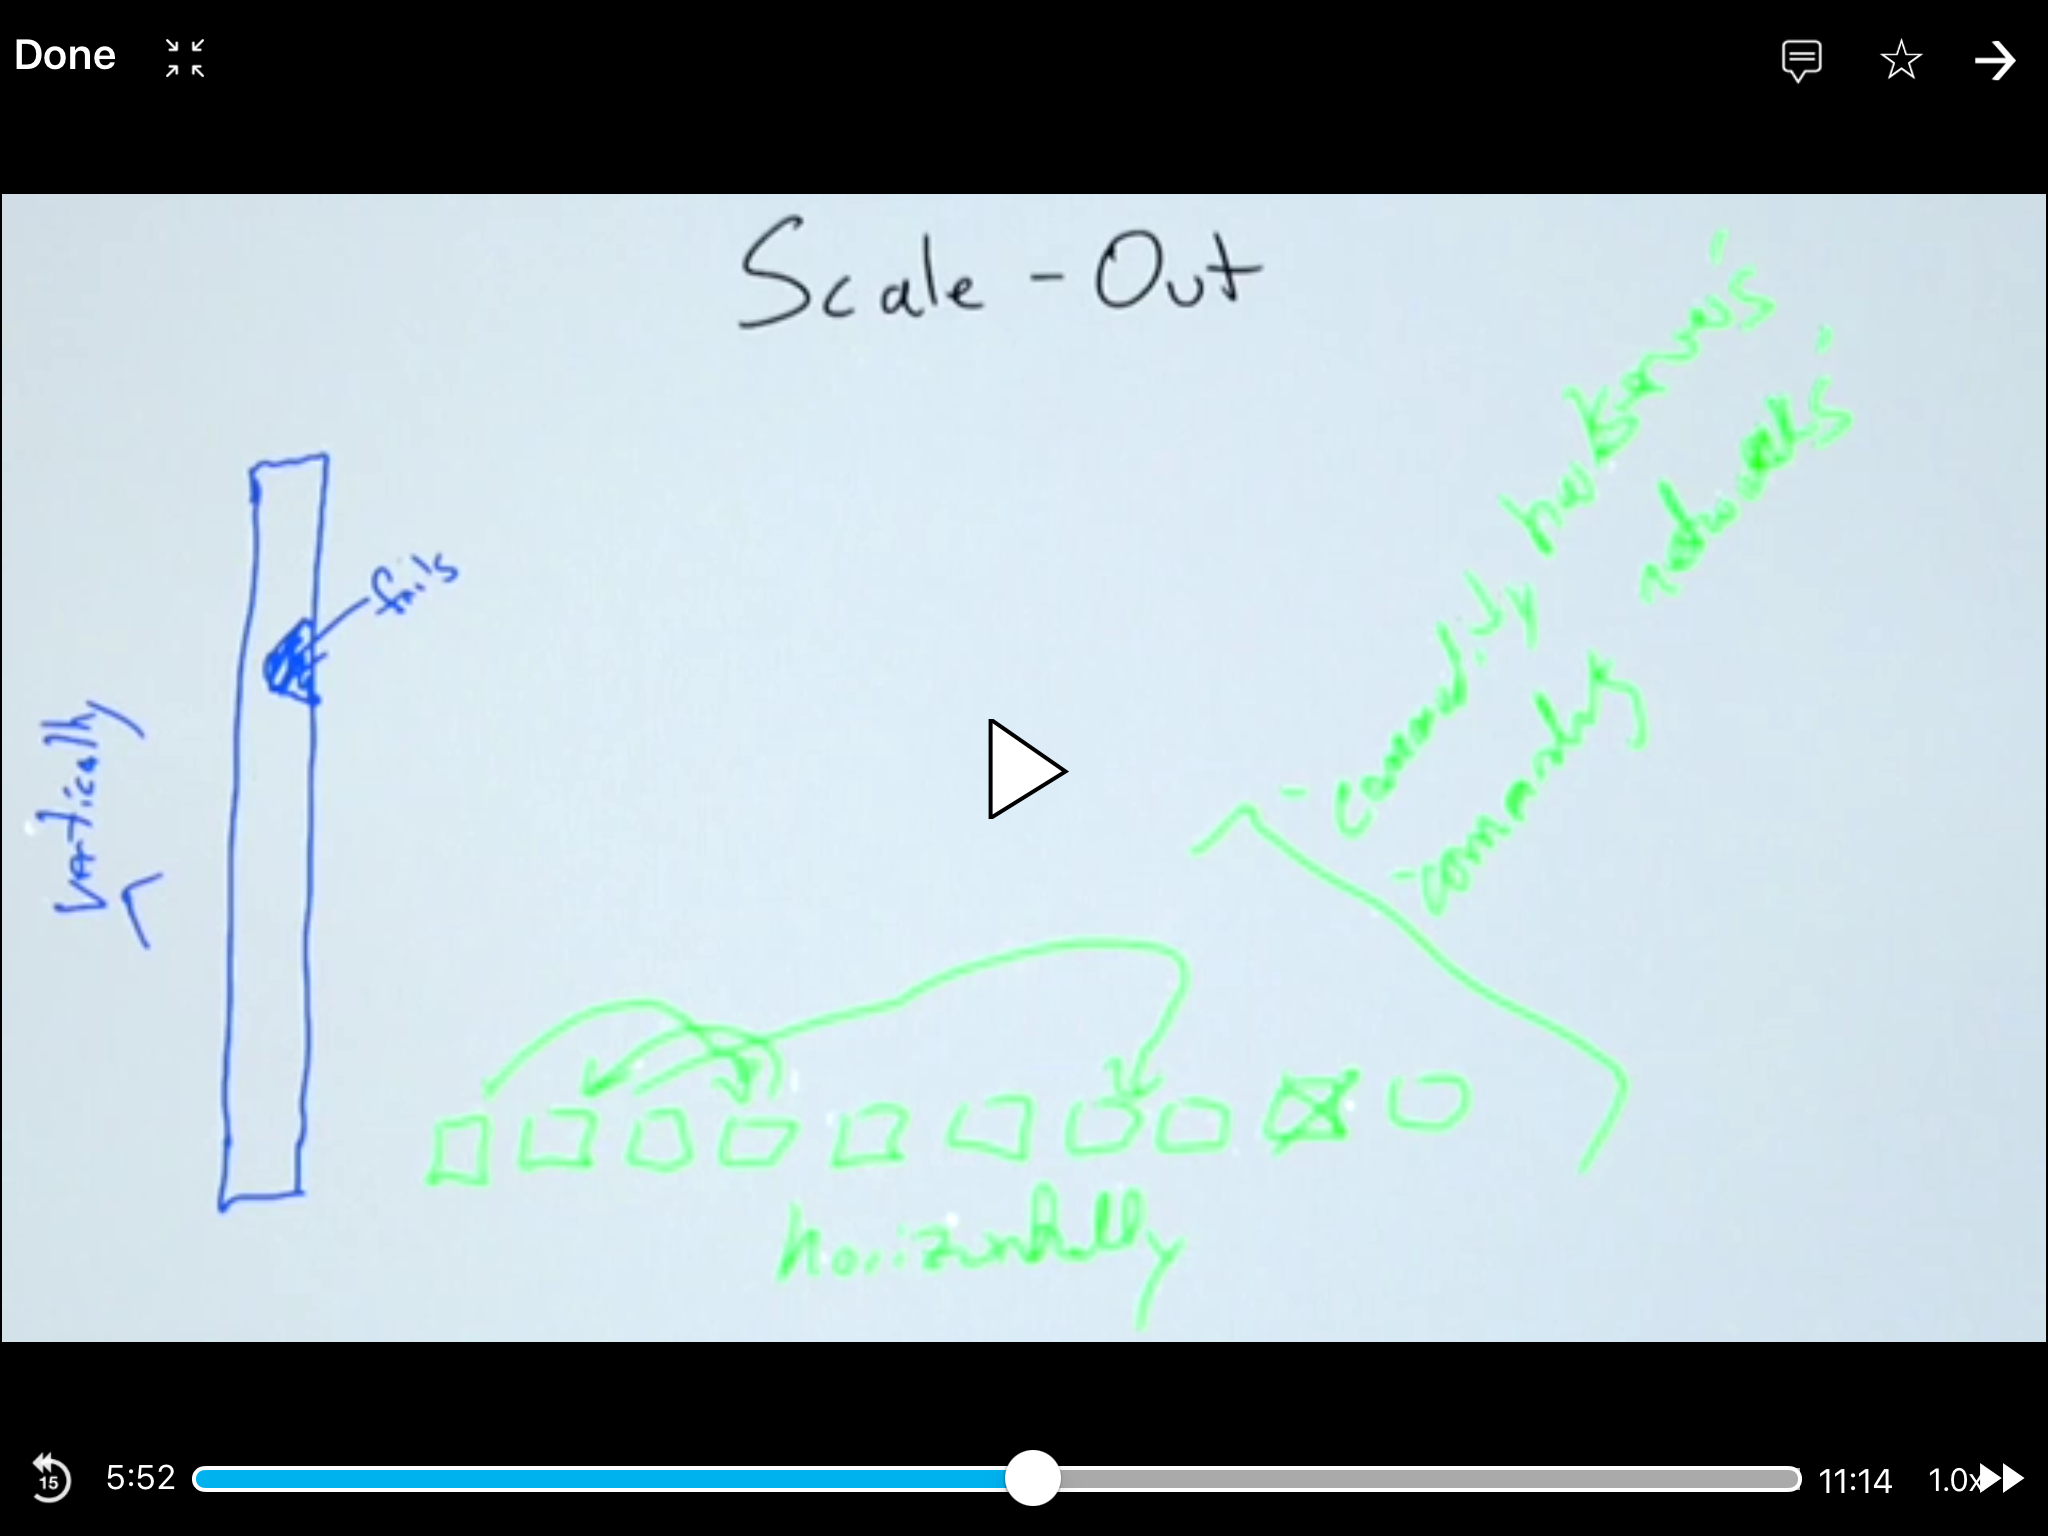 Done
Scale - Out
fails
vertically
- commodity
- commodity networks
horizontally
15
5:52
11:14
1.0x